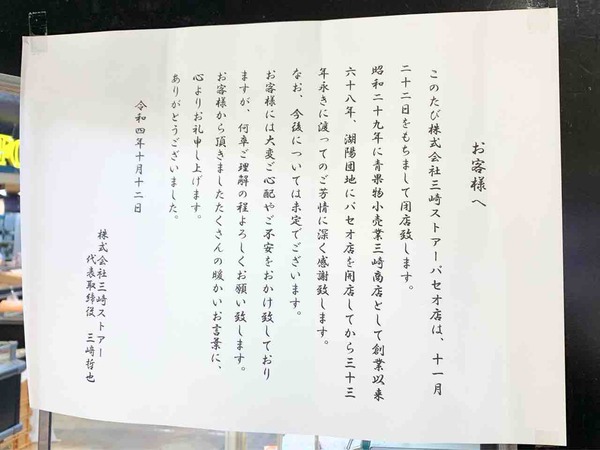 お客様へ
このたび株式会社三崎ストアーパセオ店は、十一月
二十二日をもちまして閉店致します。
昭和二十九年に青果物小売業三崎商店として創業以来
六十八年、湖陽団地にパセオ店を開店してから三十三
年永きに渡ってのご芳情に深く感謝致します。
なお、今後については未定でございます。
お客様には大変ご心配やご不安をおかけ致しており
ますが、何卒ご理解の程よろしくお願い致します。
お客様から頂きましたたくさんの暖かいお言葉に、
心よりお礼申し上げます。
ありがとうございました。
令和四年十月十二日
株式会社三崎ストアー
代表取締役 三崎哲也